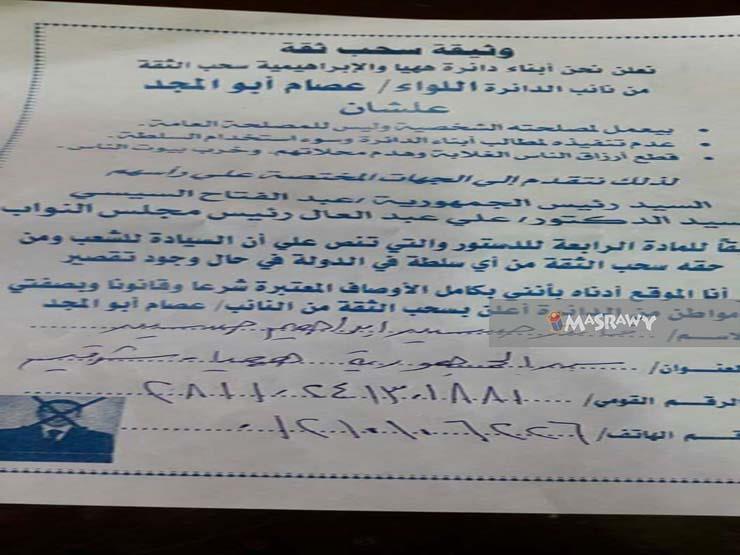 وثيقة سحب ثقة
نعلن نحن أبناء دائرة ههيا والإبراهيمية سحب الثقة
من نائب الدائرة اللواء/ عصام أبو المجد
علشان
• بيعمل لمصلحته الشخصية وليس للمصلحة العامة.
• عدم تنفيذه لمطالب أبناء الدائرة وسوء استخدام السلطة.
• قطع أرزاق الناس الغلابة وهدم محلاتهم. وخرب بيوت الناس.
لذلك نتقدم إلى الجهات المختصة على رأسهم
السيد رئيس الجمهورية/ عبد الفتاح السيسي
سيد الدكتور/ علي عبد العال رئيس مجلس النواب
قاً للمادة الرابعة للدستور والتي تنص علي أن السيادة للشعب ومن
حقه سحب الثقة من أي سلطة في الدولة في حال وجود تقصير
أنا الموقع أدناه بأنني بكامل الأوصاف المعتبرة شرعا وقانونا وبصفتي
مواطن أعلن بسحب الثقة من النائب/ عصام أبو المجد
لاسم/ ابراهيم
MASRAWY
لعنوان/ الجمهورية ههيا شرقية
لرقم القومى/
قم الهاتف/